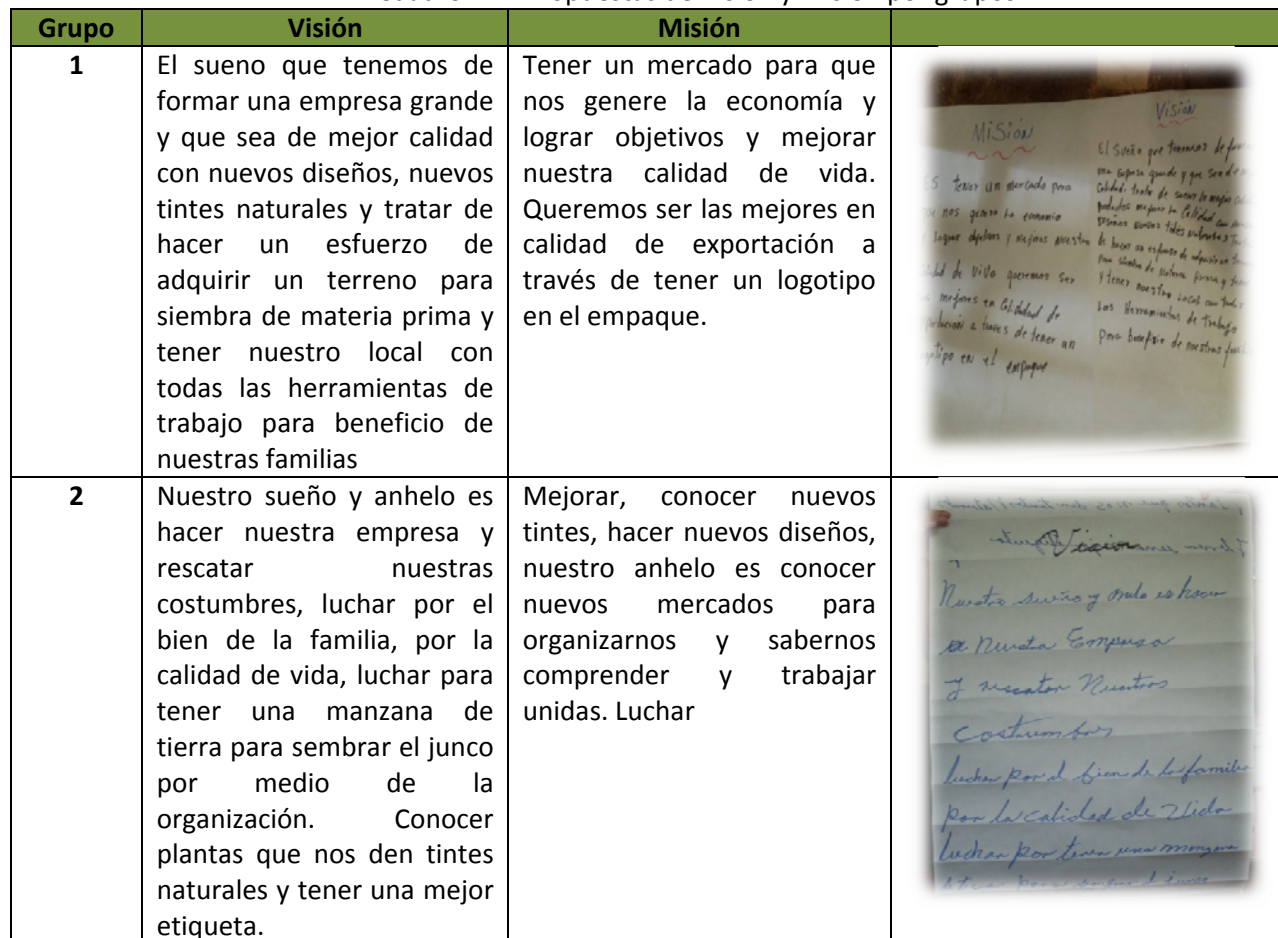 Grupo Visión Misión
1
El sueno que tenemos de
formar una empresa grande
y que sea de mejor calidad
con nuevos diseños, nuevos
tintes naturales y tratar de
hacer un esfuerzo de
adquirir un terreno para
siembra de materia prima y
tener nuestro local con
todas las herramientas de
trabajo para beneficio de
nuestras familias
Tener un mercado para que
nos genere la economía y
lograr objetivos y mejorar
nuestra calidad de vida.
Queremos ser las mejores en
calidad de exportación a
través de tener un logotipo
en el empaque.
Misión
tener un mercado para
nos genere la economia
lograr objetivos y mejorar nuestra
de vida queremos ser
mejores en calidad de
a traves de tener un
en el empaque
Visión
El sueño que tenemos de
una empresa grande y que sea de
y tener nuestro local con
las Herramientas de trabajo
para beneficio de nuestras
2
Nuestro sueño y anhelo es
hacer nuestra empresa y
rescatar nuestras
costumbres, luchar por el
bien de la familia, por la
calidad de vida, luchar para
tener una manzana de
tierra para sembrar el junco
por medio de la
organización. Conocer
plantas que nos den tintes
naturales y tener una mejor
etiqueta.
Mejorar, conocer nuevos
tintes, hacer nuevos diseños,
nuestro anhelo es conocer
nuevos mercados para
organizarnos y sabernos
comprender y trabajar
unidas. Luchar
Vision
Nuestro sueño y es hacer
Empresa
y rescatar Nuestras
Costumbres
luchar por el bien de la familia
por la calidad de Vida
luchar por tener una manzana